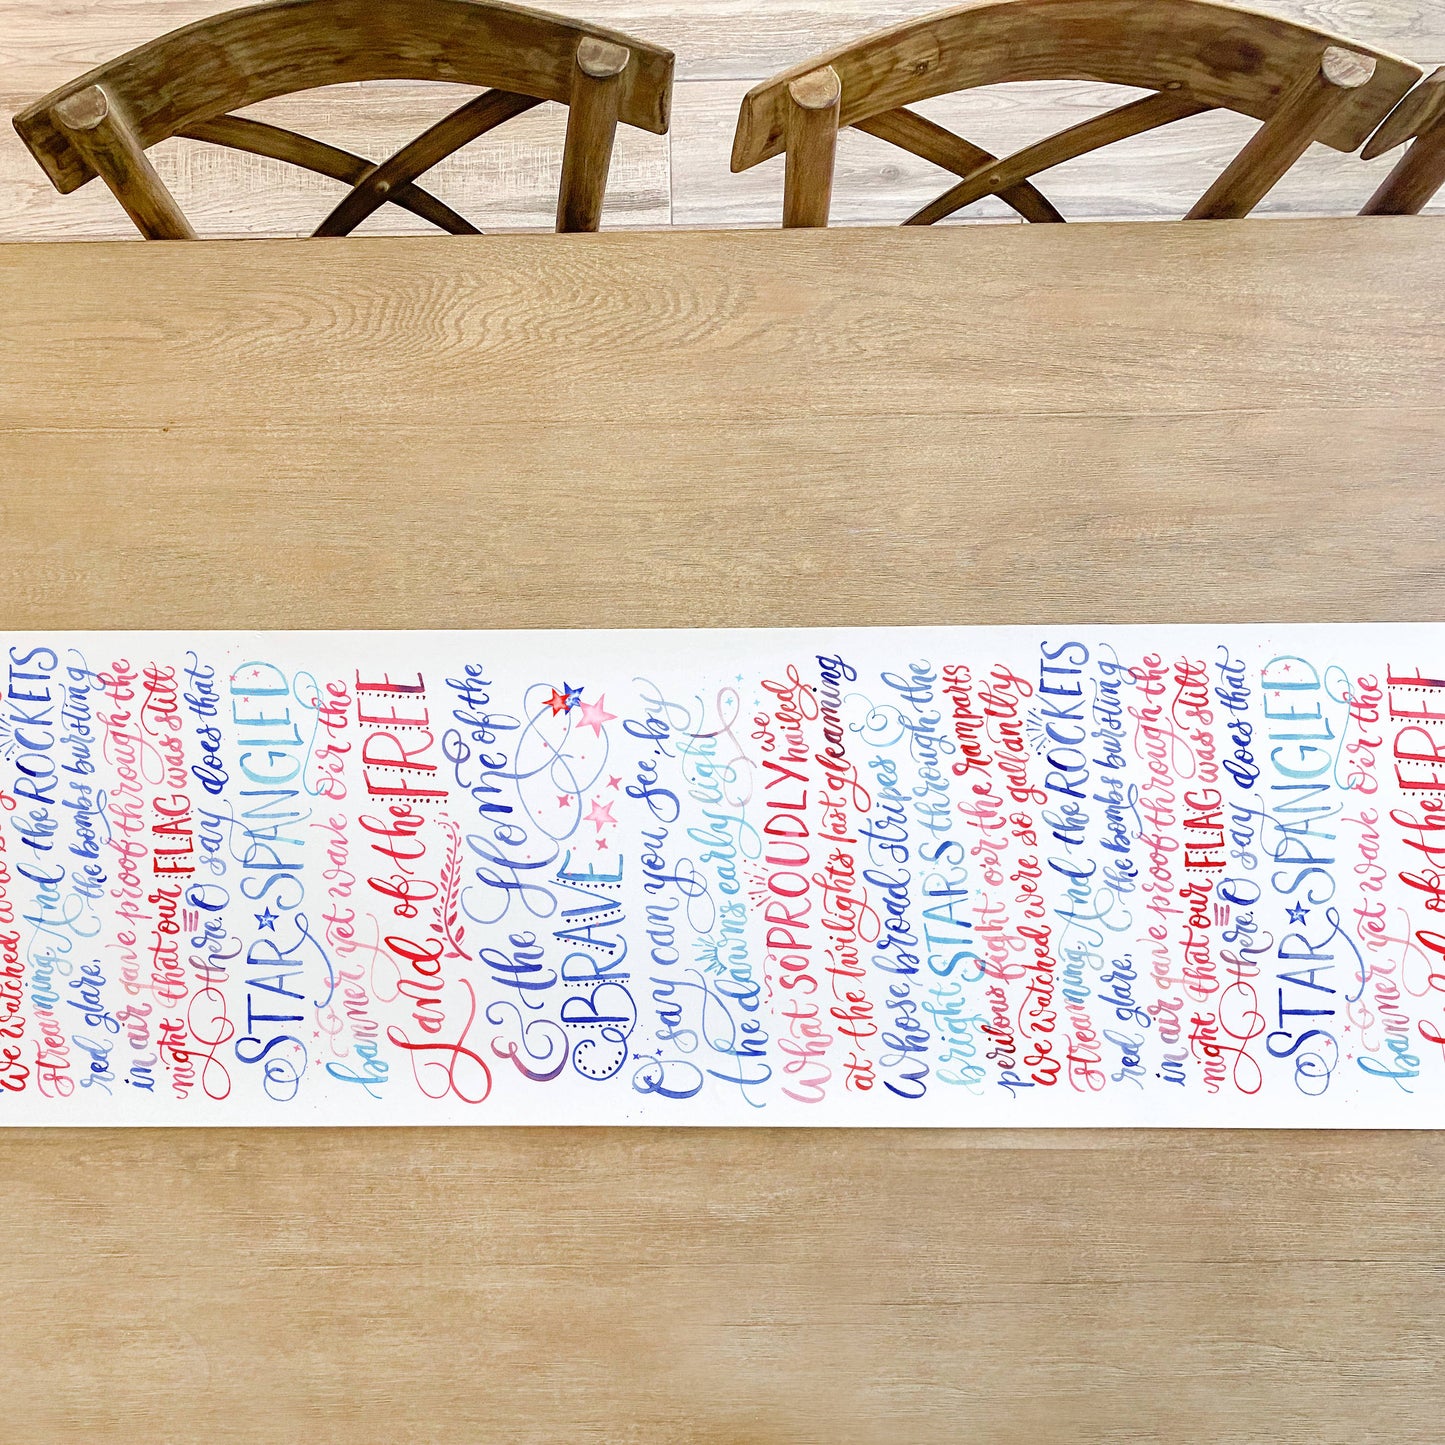 We watched
Streaming. And the ROCKETS
red glare, the bombs bursting
in air gave proof through the
night that our FLAG was still
there. O say does that
STAR SPANGLED
banner yet wave O'er the
Land of the FREE
& the Home of the
BRAVE
O say can you see, by
the dawn's early light
What SO PROUDLY we hailed
at the twilights last gleaming
Whose broad stripes &
bright STARS through the
perilous fight oer the ramparts
We watched were so gallantly
Streaming. And the ROCKETS
red glare, the bombs bursting
in air gave proof through the
night that our FLAG was still
there. O say does that
STAR SPANGLED
banner yet wave O'er the
Land of the FREE